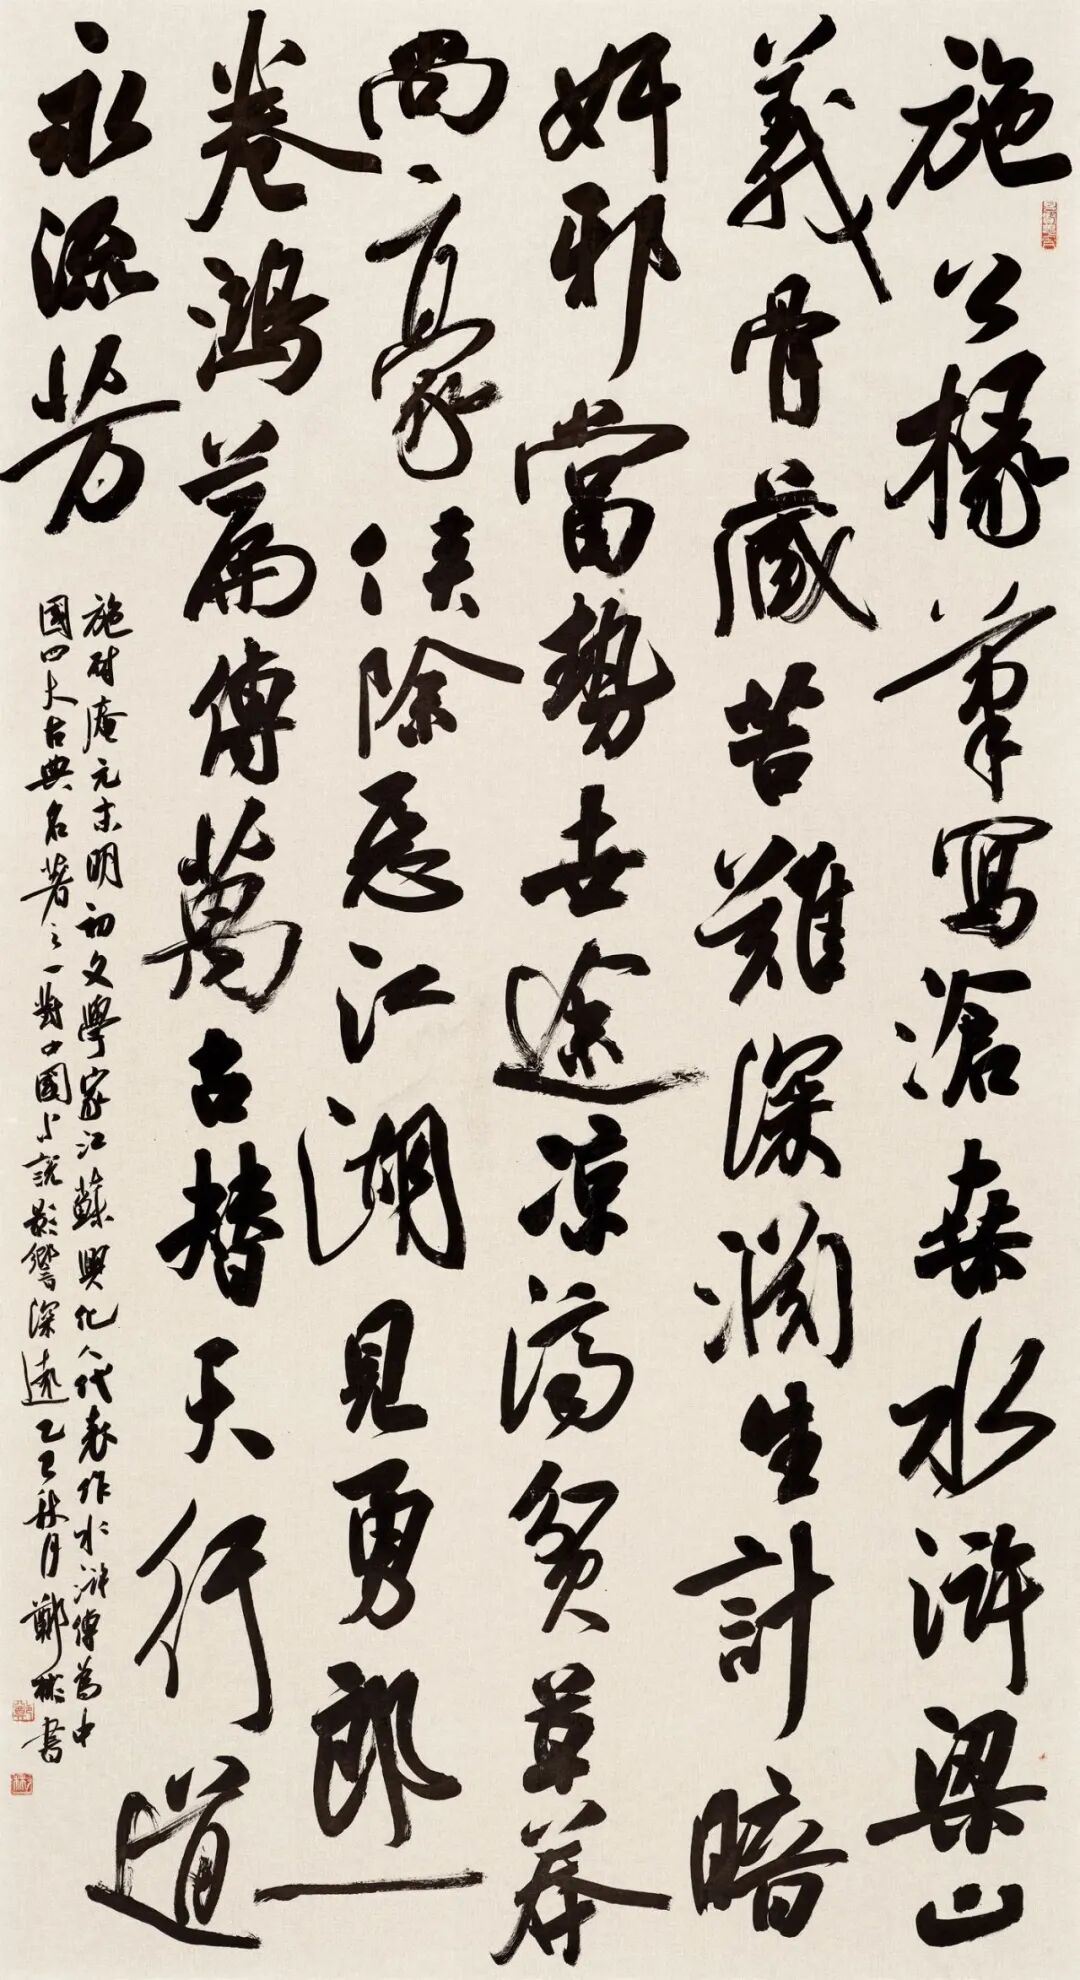 施公椽筆寫滄桑水滸梁山
義骨藏苦難深淵生計暗
奸邪當勢世途凉蕩貧草莽
尚豪俠除惡江湖見勇郎一
卷鴻篇傳萬古替天行道
永流芳
施耐庵元末明初文學家江蘇興化人代表作水滸傳為中
國四大古典名著之一對中國小說影響深遠乙巳秋月鄭彬書